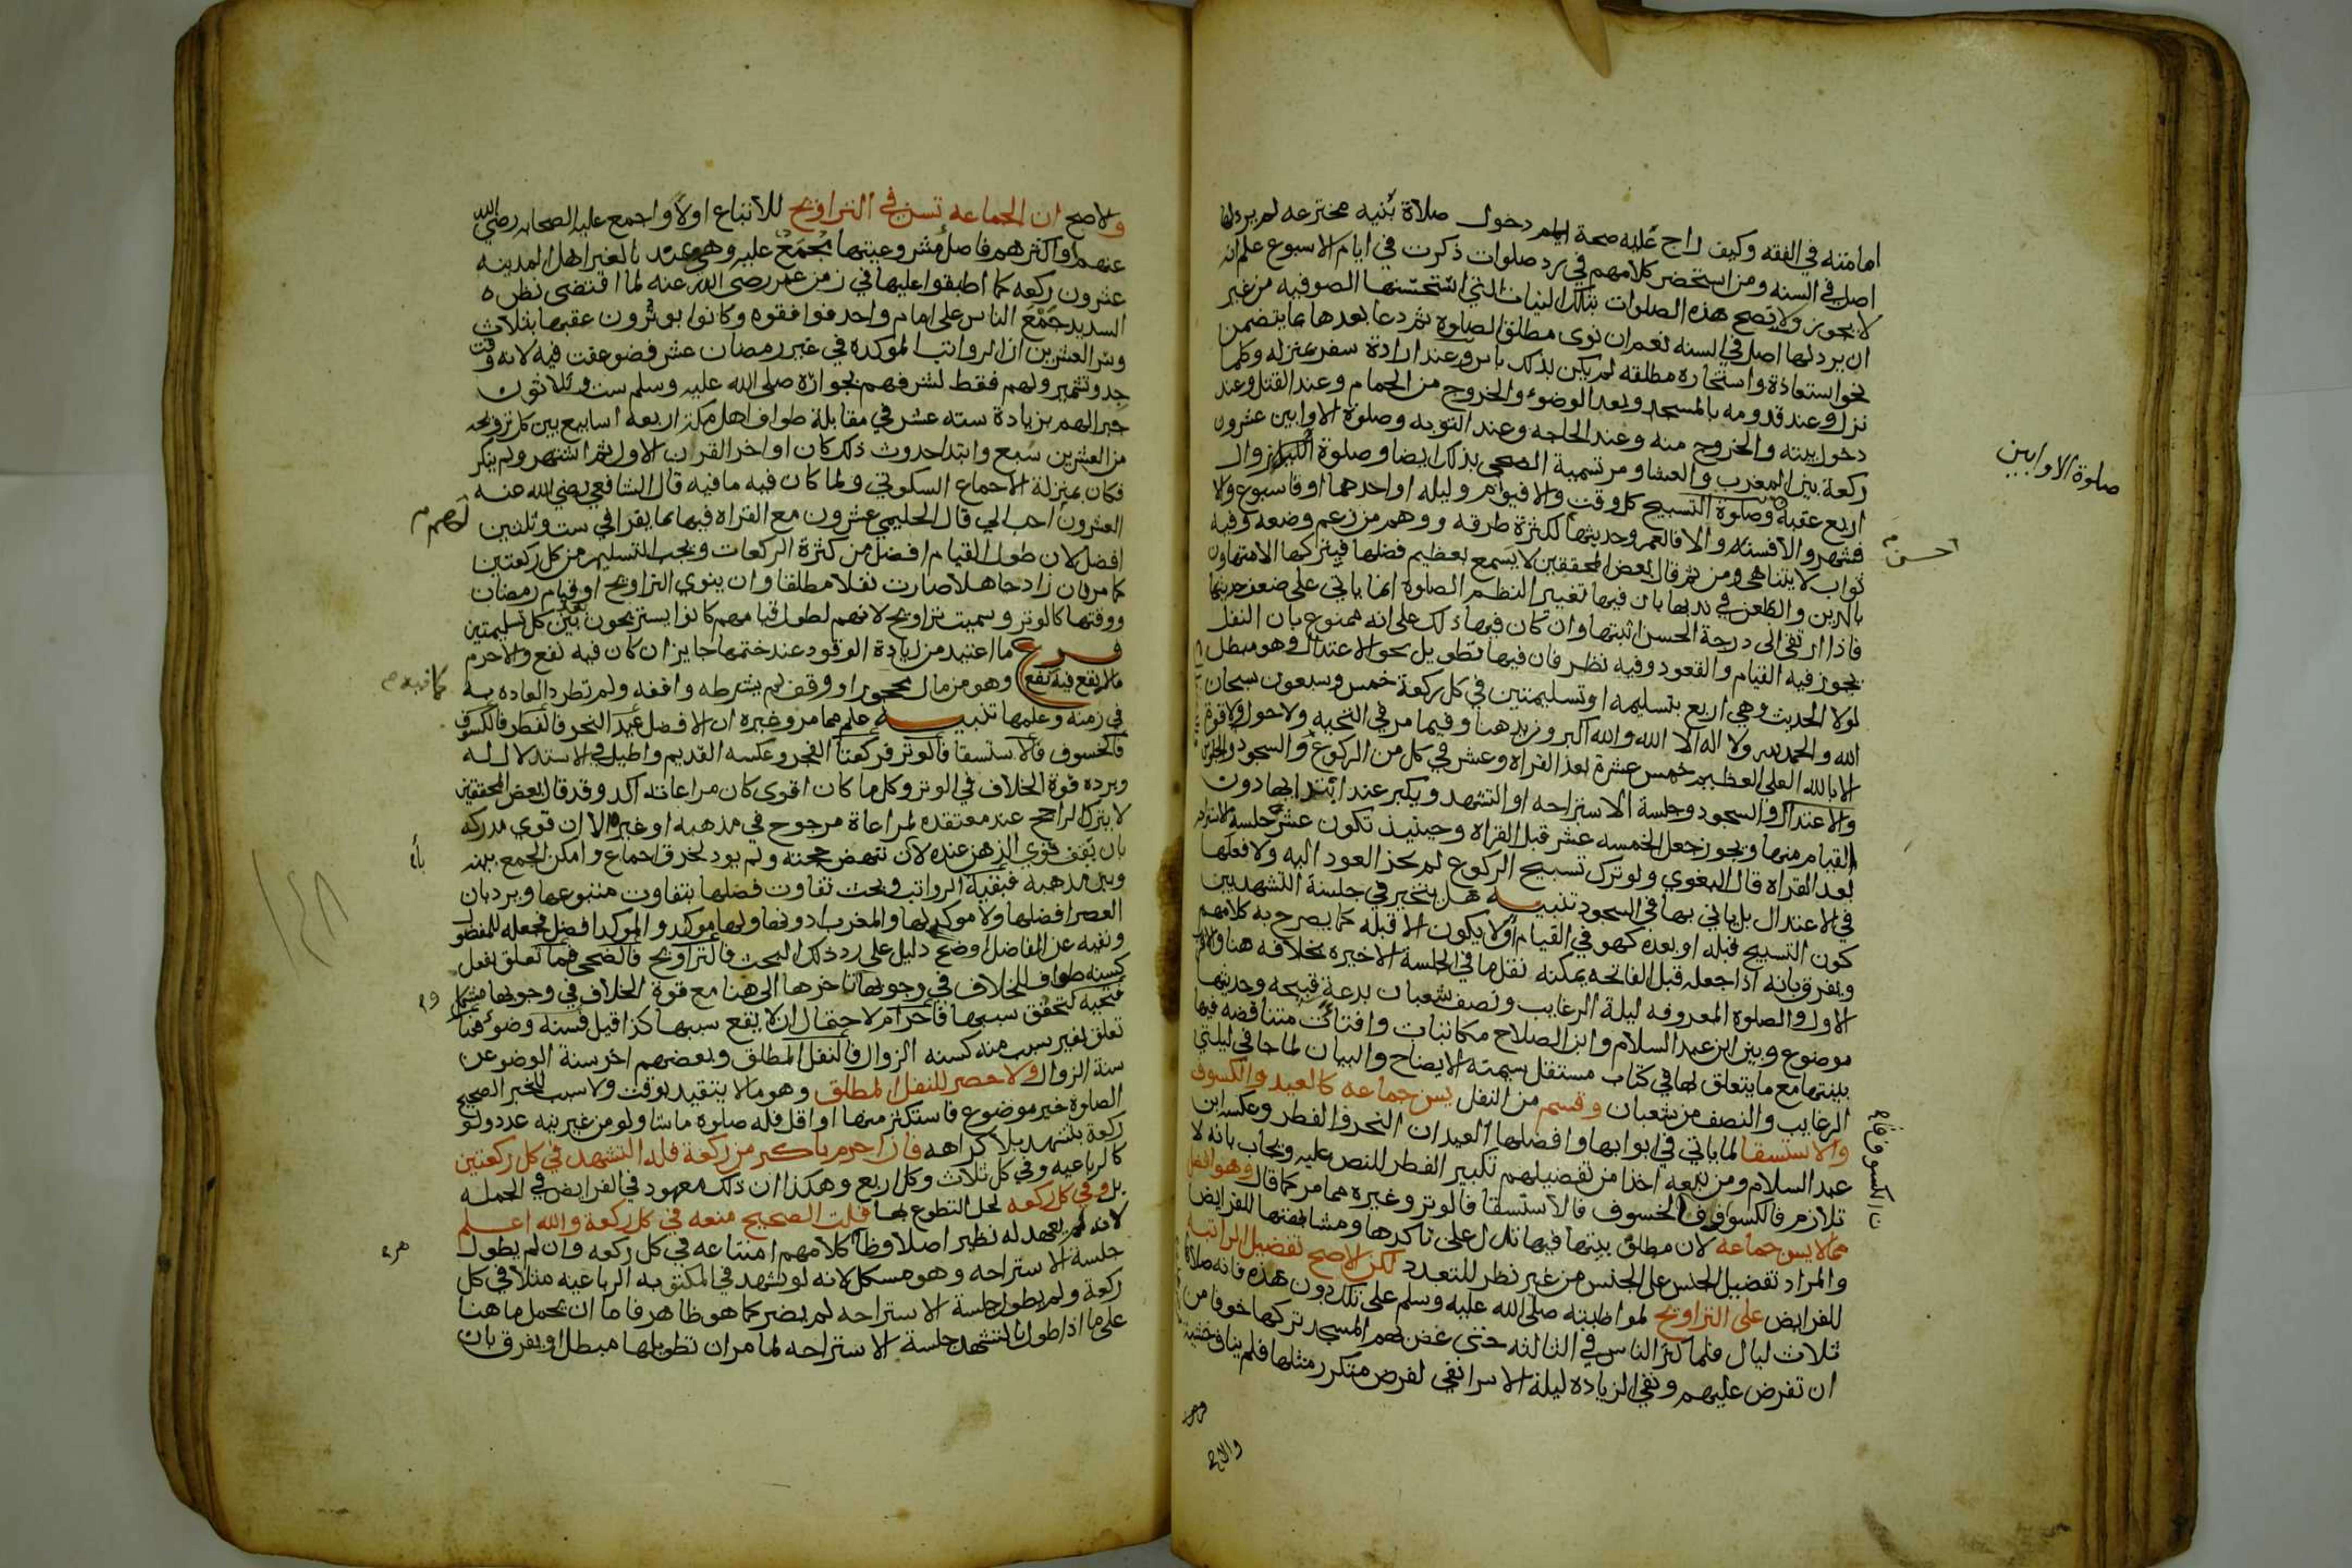 امامته في الفقه وكيف راج عليه صحة دخول صلاة بنيه مخترعه لم يرد لها
اصل في السنه ومن استحضر كلامهم في رد صلوات ذكرت في ايام الاسبوع علم انه
لا يجوز ولا تصح هذه الصلوات بتلك النيات التي استحسنها الصوفيه من غير
ان يرد لها اصل في السنه نعم ان نوى مطلق الصلوة ثم دعا بعدها بما يتضمن
نحو استعاذة واستخاره مطلقه لم يكن بذلك باس وعند ارادة سفر بمنزله وكلما
نزل وعند قدومه بالمسجد وبعد الوضوء والخروج من الحمام وعند القتل وعند
دخول بيته والخروج منه وعند الحاجه وعند التوبه وصلوة الاوابين عشرون
ركعة بين المغرب والعشا ومر تسمية الضحى بذلك ايضا وصلوة الزوال
اربع عقبه وصلوة التسبيح كل وقت والا فيوم وليله او احدهما او فاسبوع والا
فشهر والا فسنه والا فالعمر وحديثها لكثرة طرقه ووهم من زعم وضعه وفيه
ثواب لا يتناهى ومن ثم قال بعض المحققين لا يسمع بعظيم فضلها فيتركها الا متهاون
بالدين والطعن في ندبها بان فيها تغيير النظم الصلوة انما ياتي على ضعف حديثها
فاذا ارتقى الى درجة الحسن اثبتها وان كان فيها ذلك على انه ممنوع بان النفل
يجوز فيه القيام والقعود وفيه نظر فان فيها تطويل نحو الاعتدال وهو مبطل
لولا الحديث وهي اربع بتسليمه او تسليمتين في كل ركعة خمس وسبعون سبحان
الله والحمد لله ولا اله الا الله والله اكبر وزيد هنا وفيما مر في التحيه ولا حول ولا قوة
الا بالله العلي العظيم خمس عشرة بعد القراه وعشر في كل من الركوع والسجود والجلوس
والاعتدال والسجود وجلسة الاستراحه او التشهد ويكبر عند ابتدائها دون
القيام منها ويجوز جعل الخمسه عشر قبل القراه وحينيذ تكون عشر جلسة الاستراحه
بعد القراه قال البغوي ولو ترك تسبيح الركوع لم يجز العود اليه ولا فعلها
في الاعتدال بل ياتي بها في السجود تنبيه هل يتخير في جلسة التشهدين
كون التسبيح قبله او بعده كهو في القيام او لا يكون الا قبله كما يصرح به كلامهم
ويفرق بانه اذا جعله قبل الفاتحه يمكنه نقل ما في الجلسة الاخيره بخلافه هنا والاقرب
الاول والصلوة المعروفه ليلة الرغايب ونصف شعبان بدعة قبيحه وحديثها
موضوع وبين ابن عبد السلام وابن الصلاح مكاتبات وافتاآت متناقضه فيها
بينتها مع ما يتعلق بها في كتاب مستقل سميته الايضاح والبيان لما جا في ليلتي
الرغايب والنصف من شعبان وقسم من النفل يسن جماعه كالعيد والكسوف
والاستسقا لما ياتي في ابوابها وافضلها العيدان النحر فالفطر وعكسه ابن
عبد السلام ومن تبعه اخذا من تفضيلهم تكبير الفطر للنص عليه ويجاب بانه لا
تلازم فالكسوف فالخسوف فالاستسقا فالوتر وغيره مما مر كما قال وهو افضل
مما لا يسن جماعه لان مطلق سنتها فيها تدل على تاكدها ومشابهتها للفرايض
والمراد تفضيل الجنس على الجنس من غير نظر للتعدد لكن الاصح تفضيل الراتبه
للفرايض على التراويح لمواظبته صلى الله عليه وسلم على تلك دون هذه فانه صلاها
ثلاث ليال فلما كثر الناس في الثالثه حتى غص بهم المسجد تركها خوفا من
ان تفرض عليهم ونفي الزياده ليلة الاسرا نفي لفرض متكرر مثلها فلم يناف خشية
صلوة الاوابين
احسن
والاصح ان الجماعه تسن في التراويح للاتباع اولا واجمع عليه الصحابه رضي الله
عنهم او اكثرهم فاصل مشروعيتها مجمع عليه وهي عندنا لغير اهل المدينه
عشرون ركعه كما اطبقوا عليها في زمن عمر رضي الله عنه لما اقتضى نظره
السديد جمع الناس على امام واحد فوافقوه وكانوا يوترون عقبها بثلاث
وسر العشرين ان الرواتب الموكده في غير رمضان عشر فضوعفت فيه لانه وقت
جد وتشمير ولهم فقط لشرفهم بجواره صلى الله عليه وسلم ست وثلاثون
جبرا لهم بزيادة سته عشر في مقابلة طواف اهل مكة اربعه اسابيع بين كل ترويحه
من العشرين سبع وابتدا حدوث ذلك كان اواخر القرن الاول ثم اشتهر ولم ينكر
فكان بمنزلة الاجماع السكوتي ولما كان فيه ما فيه قال الشافعي رضي الله عنه
العشرون احب الي قال الحليمي عشرون مع القراه فيها بما يقرا في ست وثلثين
افضل لان طول القيام افضل من كثرة الركعات ويجب التسليم من كل ركعتين
كما مر فان زاد جاهلا صارت نفلا مطلقا وان ينوي التراويح او قيام رمضان
ووقتها كالوتر وسميت تراويح لانهم لطول قيامهم كانوا يستريحون بعد كل تسليمتين
فرع ما اعتيد من زيادة الوقود عند ختمها جايز ان كان فيه نفع والا حرم
مالا نفع فيه وهو من مال محجور او وقف لم يشرطه واقفه ولم تطرد العاده به
في زمنه وعلمها تنبيه علم مما مر وغيره ان الافضل عيد النحر فالفطر فالكسوف
فالخسوف فالاستسقا فالوتر فركعتا الفجر وعكسه القديم واطيل في الاستدلال له
ويرده قوة الخلاف في الوتر وكل ما كان اقوى كان مراعاته اكد وقد قال بعض المحققين
لا يترك الراجح عند معتقده لمراعاة مرجوح في مذهبه او غيره الا ان قوي مدركه
بان يقف قوي الذهن عنده لان تنهض حجته ولم يود لخرق اجماع وامكن الجمع بينه
وبين مذهبه فبقية الرواتب وبحث تفاوت فضلها بتفاوت متبوعها ويرد بان
العصر افضلها ولا موكد لها والمغرب ادونها ولها موكد والموكد افضل فجعله للمفضول
ونفيه عن الفاضل اوضح دليل على رد ذلك البحث فالتراويح فالضحى فما تعلق بفعل
كسنه طواف للخلاف في وجوبها تاخرها الى هنا مع قوة الخلاف في وجوبها مشكل
فتحيه لتحقق سببها فاحرام لاحتمال ان لا يقع سببها كذا قيل فسنه وضوء فما
تعلق بغير سبب منه كسنه الزوال فالنفل المطلق وبعضهم اخر سنة الوضو عن
سنة الزوال ولا حصر للنفل المطلق وهو مالا يتقيد بوقت ولا سبب للخبر الصحيح
الصلوة خير موضوع فاستكثر منها او اقل فله صلوة ما شا ولو من غير نيه عدد ولو
ركعة بتشهد بلا كراهه فان احرم باكثر من ركعة فله التشهد في كل ركعتين
كالرباعيه وفي كل ثلاث وكل اربع وهكذا ان ذلك معهود في الفرايض في الجمله
بل وفي كل ركعه لحل التطوع بها قلت الصحيح منعه في كل ركعة والله اعلم
لانه لم يعهد له نظير اصلا وظاهر كلامهم امتناعه في كل ركعه وان لم يطول
جلسة الاستراحه وهو مشكل لانه لو تشهد في المكتوبه الرباعيه مثلا في كل
ركعة ولم يطول جلسة الاستراحه لم يضر كما هو ظاهر فاما ان يحمل ما هنا
على ما اذا طول بالتشهد جلسة الاستراحه لما مر ان تطويلها مبطل او يفرق بان